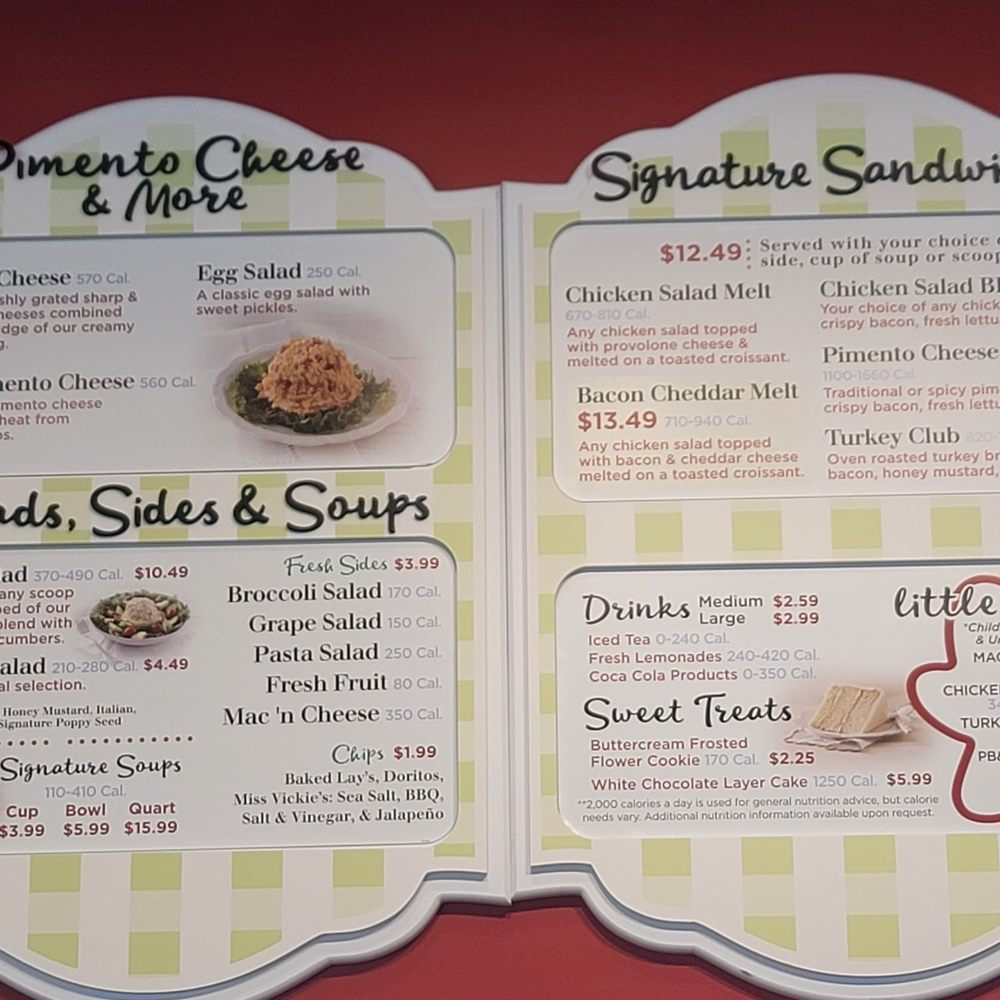 Pimento Cheese
& More
Cheese 570 Cal.
shly grated sharp &
heeses combined
dge of our creamy
g.
mento Cheese 560 Cal.
mento cheese
heat from
os.
Egg Salad 250 Cal.
A classic egg salad with
sweet pickles.
ads, Sides & Soups
ad 370-490 Cal. $10.49
any scoop
ped of our
blend with
cumbers.
alad 210-280 Cal. $4.49
al selection.
Honey Mustard, Italian,
Signature Poppy Seed
Signature Soups
110-410 Cal.
Cup Bowl Quart
$3.99 $5.99 $15.99
Fresh Sides $3.99
Broccoli Salad 170 Cal.
Grape Salad 150 Cal.
Pasta Salad 250 Cal.
Fresh Fruit 80 Cal.
Mac 'n Cheese 350 Cal.
Chips $1.99
Baked Lay's, Doritos,
Miss Vickie's: Sea Salt, BBQ,
Salt & Vinegar, & Jalapeño
Signature Sandwi
$12.49 Served with your choice
side, cup of soup or scoop
Chicken Salad Melt
670-810 Cal.
Any chicken salad topped
with provolone cheese &
melted on a toasted croissant.
Bacon Cheddar Melt
$13.49 710-940 Cal.
Any chicken salad topped
with bacon & cheddar cheese
melted on a toasted croissant.
Chicken Salad BL
Your choice of any chick
crispy bacon, fresh lettu
Pimento Cheese
1100-1660 Cal.
Traditional or spicy pim
crispy bacon, fresh lettu
Turkey Club 820-
Oven roasted turkey br
bacon, honey mustard,
Drinks Medium $2.59
Large $2.99
Iced Tea 0-240 Cal.
Fresh Lemonades 240-420 Cal.
Coca Cola Products 0-350 Cal.
Sweet Treats
Buttercream Frosted
Flower Cookie 170 Cal. $2.25
White Chocolate Layer Cake 1250 Cal. $5.99
**2,000 calories a day is used for general nutrition advice, but calorie
needs vary. Additional nutrition information available upon request.
little
*Child
& U
MAC
CHICKE
34
TURK
PB&